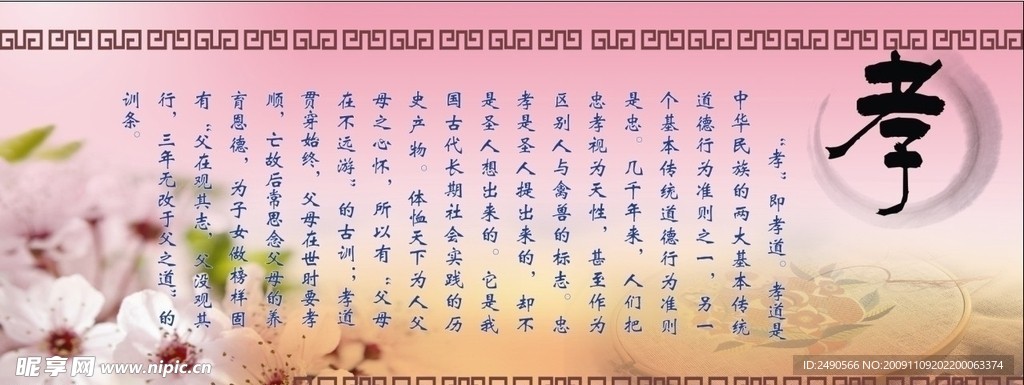 孝
“孝”即孝道。孝道是
中华民族的两大基本传统
道德行为准则之一，另一
个基本传统道德行为准则
是忠。几千年来，人们把
忠孝视为天性，甚至作为
区别人与禽兽的标志。忠
孝是圣人提出来的，却不
是圣人想出来的。它是我
国古代长期社会实践的历
史产物。体恤天下为人父
母之心怀，所以有“父母
在不远游”的古训；孝道
贯穿始终，父母在世时要孝
顺，亡故后常思念父母的养
育恩德，为子女做榜样固
有“父在观其志，父没观其
行，三年无改于父之道”的
训条。
昵享网 www.nipic.cn
ID:2490566 NO:20091109202200063374